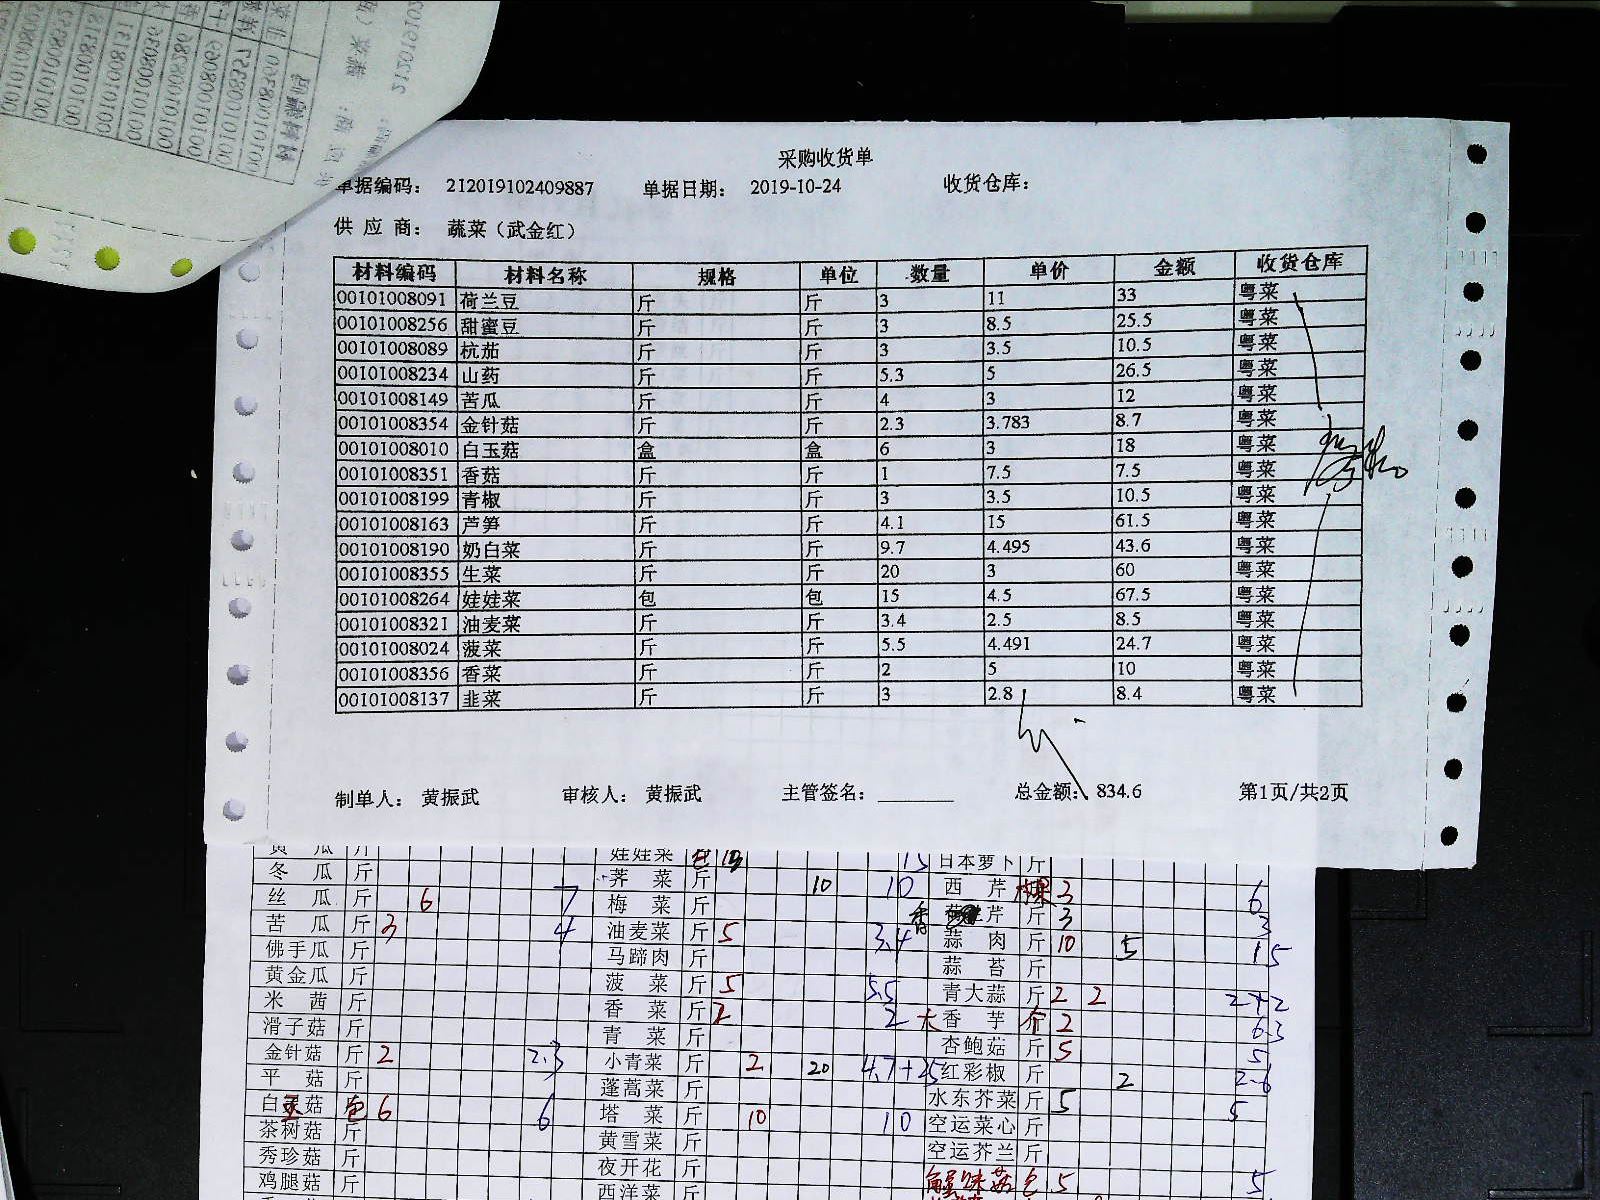 采购收货单
单据编码： 212019102409887 单据日期： 2019-10-24 收货仓库：
供 应 商： 蔬菜（武金红）
材料编码 材料名称 规格 单位 数量 单价 金额 收货仓库
00101008091 荷兰豆 斤 斤 3 11 33 粤菜
00101008256 甜蜜豆 斤 斤 3 8.5 25.5 粤菜
00101008089 杭茄 斤 斤 3 3.5 10.5 粤菜
00101008234 山药 斤 斤 5.3 5 26.5 粤菜
00101008149 苦瓜 斤 斤 4 3 12 粤菜
00101008354 金针菇 斤 斤 2.3 3.783 8.7 粤菜
00101008010 白玉菇 盒 盒 6 3 18 粤菜
00101008351 香菇 斤 斤 1 7.5 7.5 粤菜
00101008199 青椒 斤 斤 3 3.5 10.5 粤菜
00101008163 芦笋 斤 斤 4.1 15 61.5 粤菜
00101008190 奶白菜 斤 斤 9.7 4.495 43.6 粤菜
00101008355 生菜 斤 斤 20 3 60 粤菜
00101008264 娃娃菜 包 包 15 4.5 67.5 粤菜
00101008321 油麦菜 斤 斤 3.4 2.5 8.5 粤菜
00101008024 菠菜 斤 斤 5.5 4.491 24.7 粤菜
00101008356 香菜 斤 斤 2 5 10 粤菜
00101008137 韭菜 斤 斤 3 2.8 8.4 粤菜
制单人： 黄振武 审核人： 黄振武 主管签名： 总金额： 834.6 第1页/共2页
黄 瓜 斤 娃娃菜 包 15 15 日本萝卜 斤
冬 瓜 斤 荠 菜 斤 10 10 西 芹 棵 3 6
丝 瓜 斤 6 7 梅 菜 斤 香 芹 斤 3 3
苦 瓜 斤 3 4 油麦菜 斤 5 3.4 蒜 肉 斤 10 5 15
佛手瓜 斤 马蹄肉 斤 蒜 苔 斤
黄金瓜 斤 菠 菜 斤 5 5.5 青大蒜 斤 2 2 2+2
米 茜 斤 香 菜 斤 2 2 大香 芋 个 2 6.3
滑子菇 斤 青 菜 斤 杏鲍菇 斤 5 5
金针菇 斤 2 2.3 小青菜 斤 2 20 4.7+25 红彩椒 斤 2 2.6
平 菇 斤 蓬蒿菜 斤 水东芥菜 斤 5 5
白玉菇 包 6 6 塔 菜 斤 10 10 空运菜心 斤
茶树菇 斤 黄雪菜 斤 空运芥兰 斤
秀珍菇 斤 夜开花 斤 蟹味菇 包 5 5
鸡腿菇 斤 西洋菜 斤